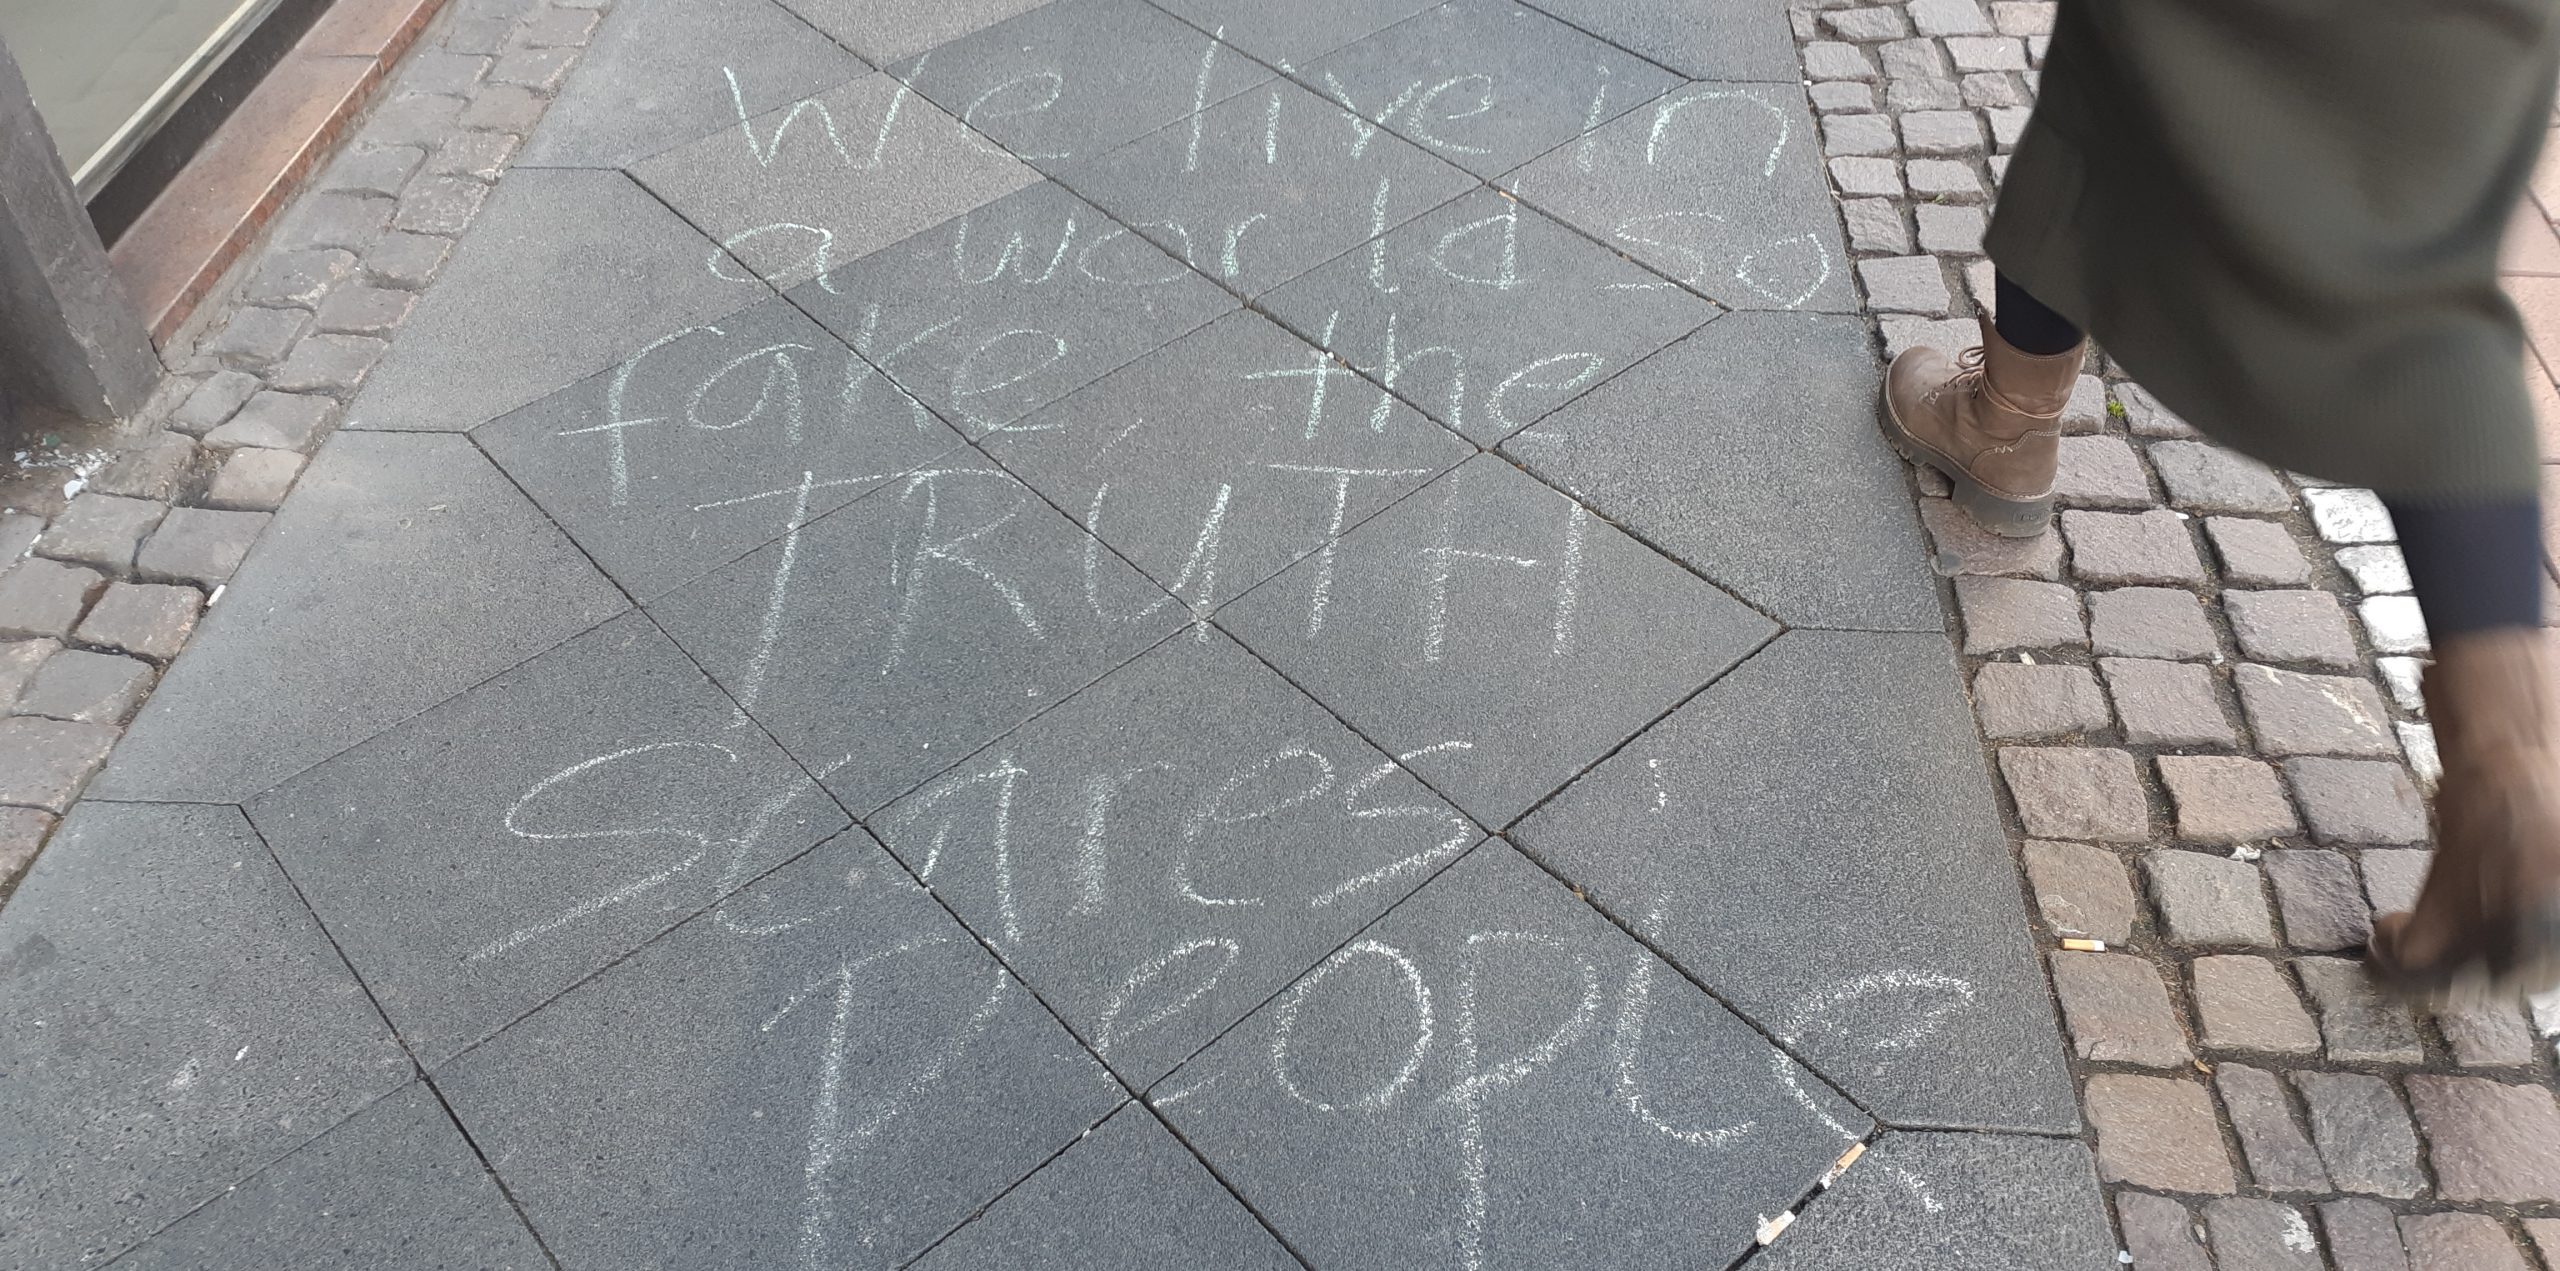 We live in
a world so
fake the
TRUTH
scares
People